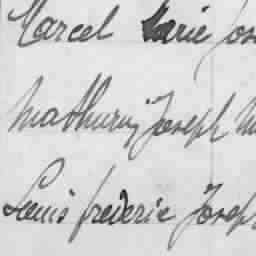 Marcel Marie Jos
Mathurin Joseph M
Louis frederic Joseph